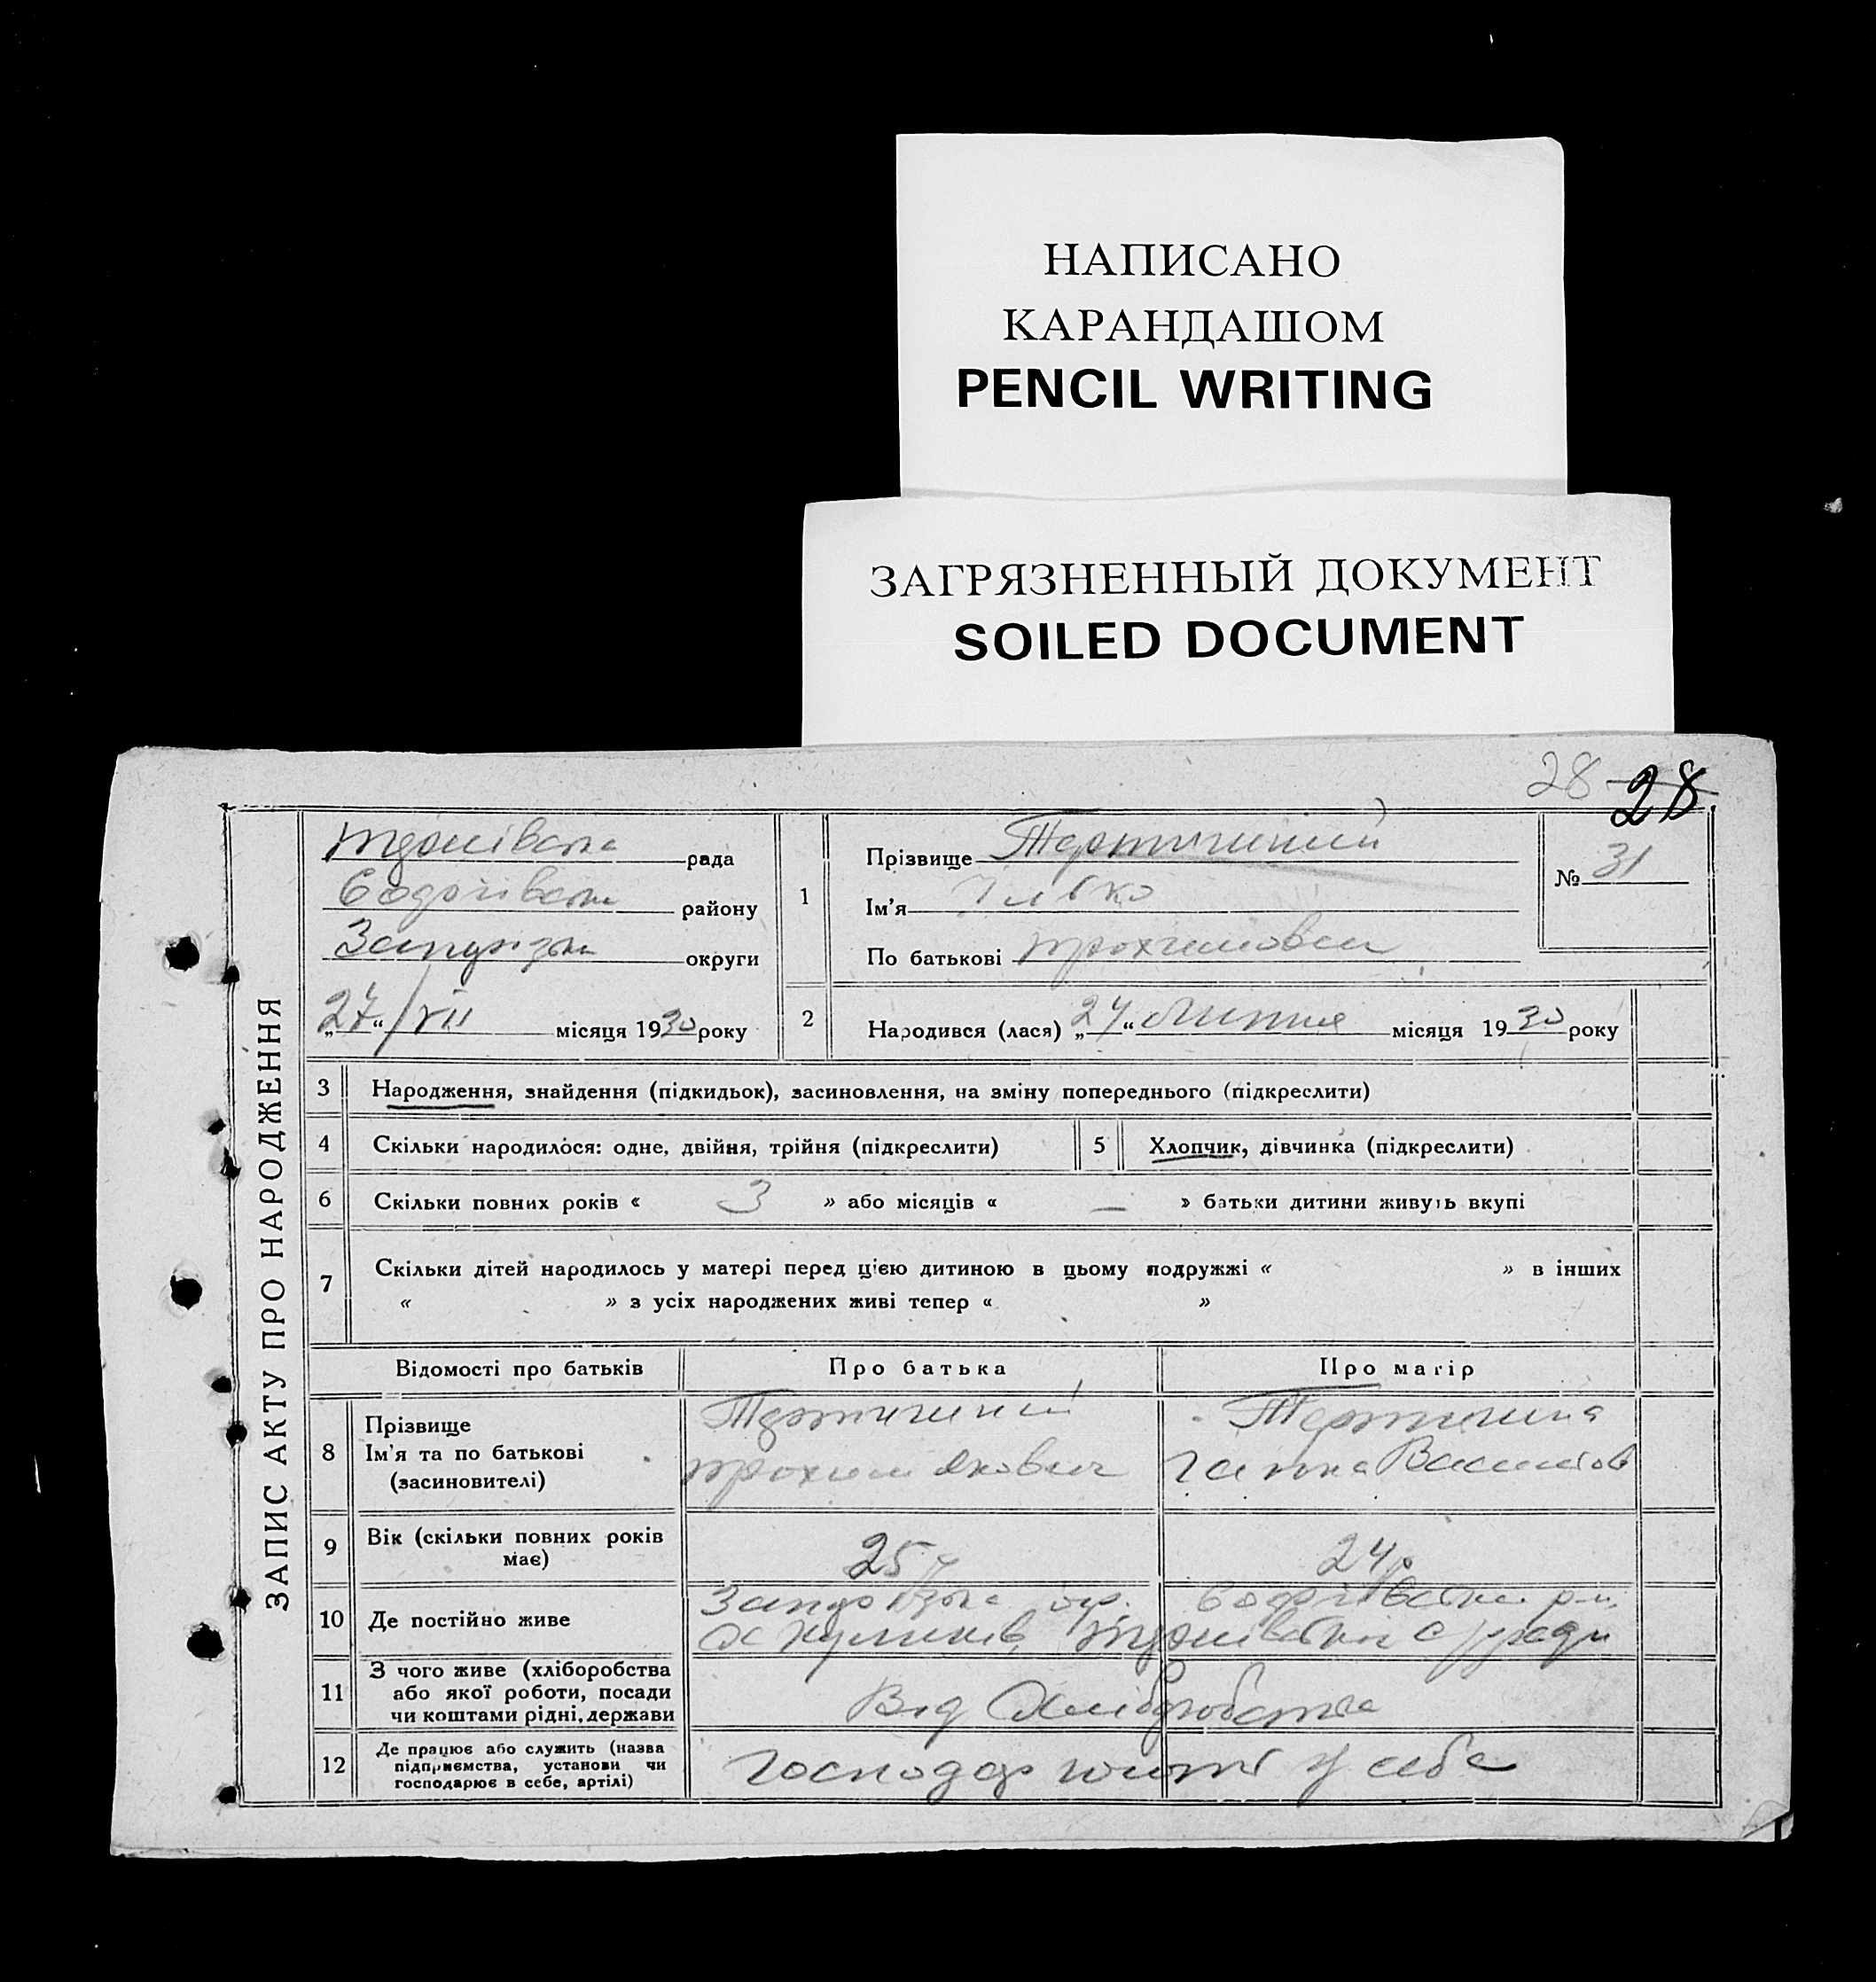 НАПИСАНО
КАРАНДАШОМ
PENCIL WRITING
ЗАГРЯЗНЕННЫЙ ДОКУМЕНТ
SOILED DOCUMENT
28 28
ЗАПИС АКТУ ПРО НАРОДЖЕННЯ
рада
району
округи
"27" /VII місяця 1930 року
1
Прізвище
Ім'я Ілько
По батькові Трохимович
№ 31
2 Народився (лася) "24" Липня місяця 1930 року
3 Народження, знайдення (підкидьок), засиновлення, на зміну попереднього (підкреслити)
4 Скільки народилося: одне, двійня, трійня (підкреслити) 5 Хлопчик, дівчинка (підкреслити)
6 Скільки повних років « 3 » або місяців « — » батьки дитини живуть вкупі
7 Скільки дітей народилось у матері перед цією дитиною в цьому подружжі « » в інших
« » з усіх народжених живі тепер « »
Відомості про батьків Про батька Про матір
8 Прізвище
Ім'я та по батькові
(засиновителі)
Трохим Якович
Ганна Васильов
9 Вік (скільки повних років
має)
25 р 24 р
10 Де постійно живе
11 З чого живе (хліборобства
або якої роботи, посади
чи коштами рідні, держави
Від Хліборобства
12 Де працює або служить (назва
підприємства, установи чи
господарює в себе, артілі)
у себе